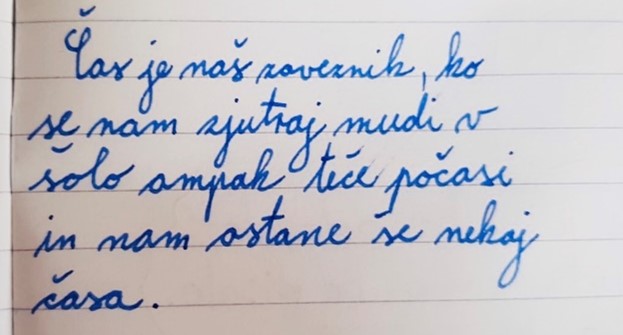 Čas je naš zaveznik, ko
se nam zjutraj mudi v
šolo ampak teče počasi
in nam ostane še nekaj
časa.